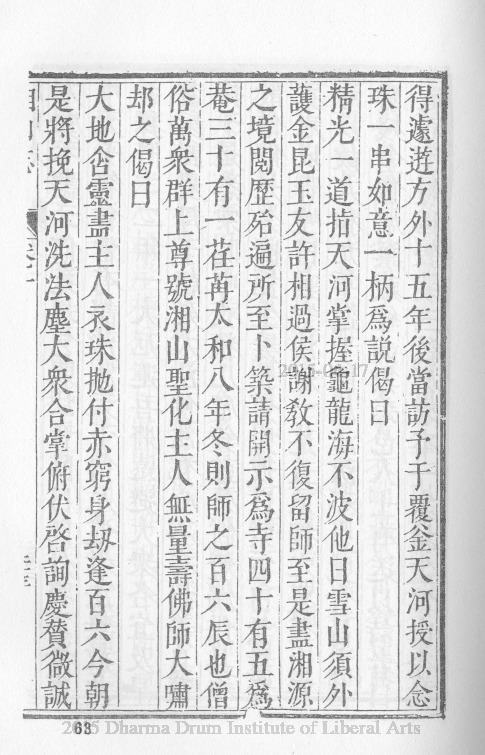 得遽遊方外十五年後當訪予于覆釜天河授以念
珠一串如意一柄爲說偈曰
精光一道指天河掌握龜龍海不波他日雪山須外
護金昆玉友許相過侯謝敎不復留師至是盡湘源
之境閱歷殆遍所至卜築請開示爲寺四十有五爲
菴三十有一荏苒太和八年冬則師之百六辰也僧
俗萬衆群上尊號湘山聖化主人無量壽佛師大嘯
却之偈曰
大地含靈盡主人衣珠拋付赤窮身刼逢百六今朝
是將挽天河洗法塵大衆合掌俯伏啓詢慶賛微誠
63
2015 Dharma Drum Institute of Liberal Arts